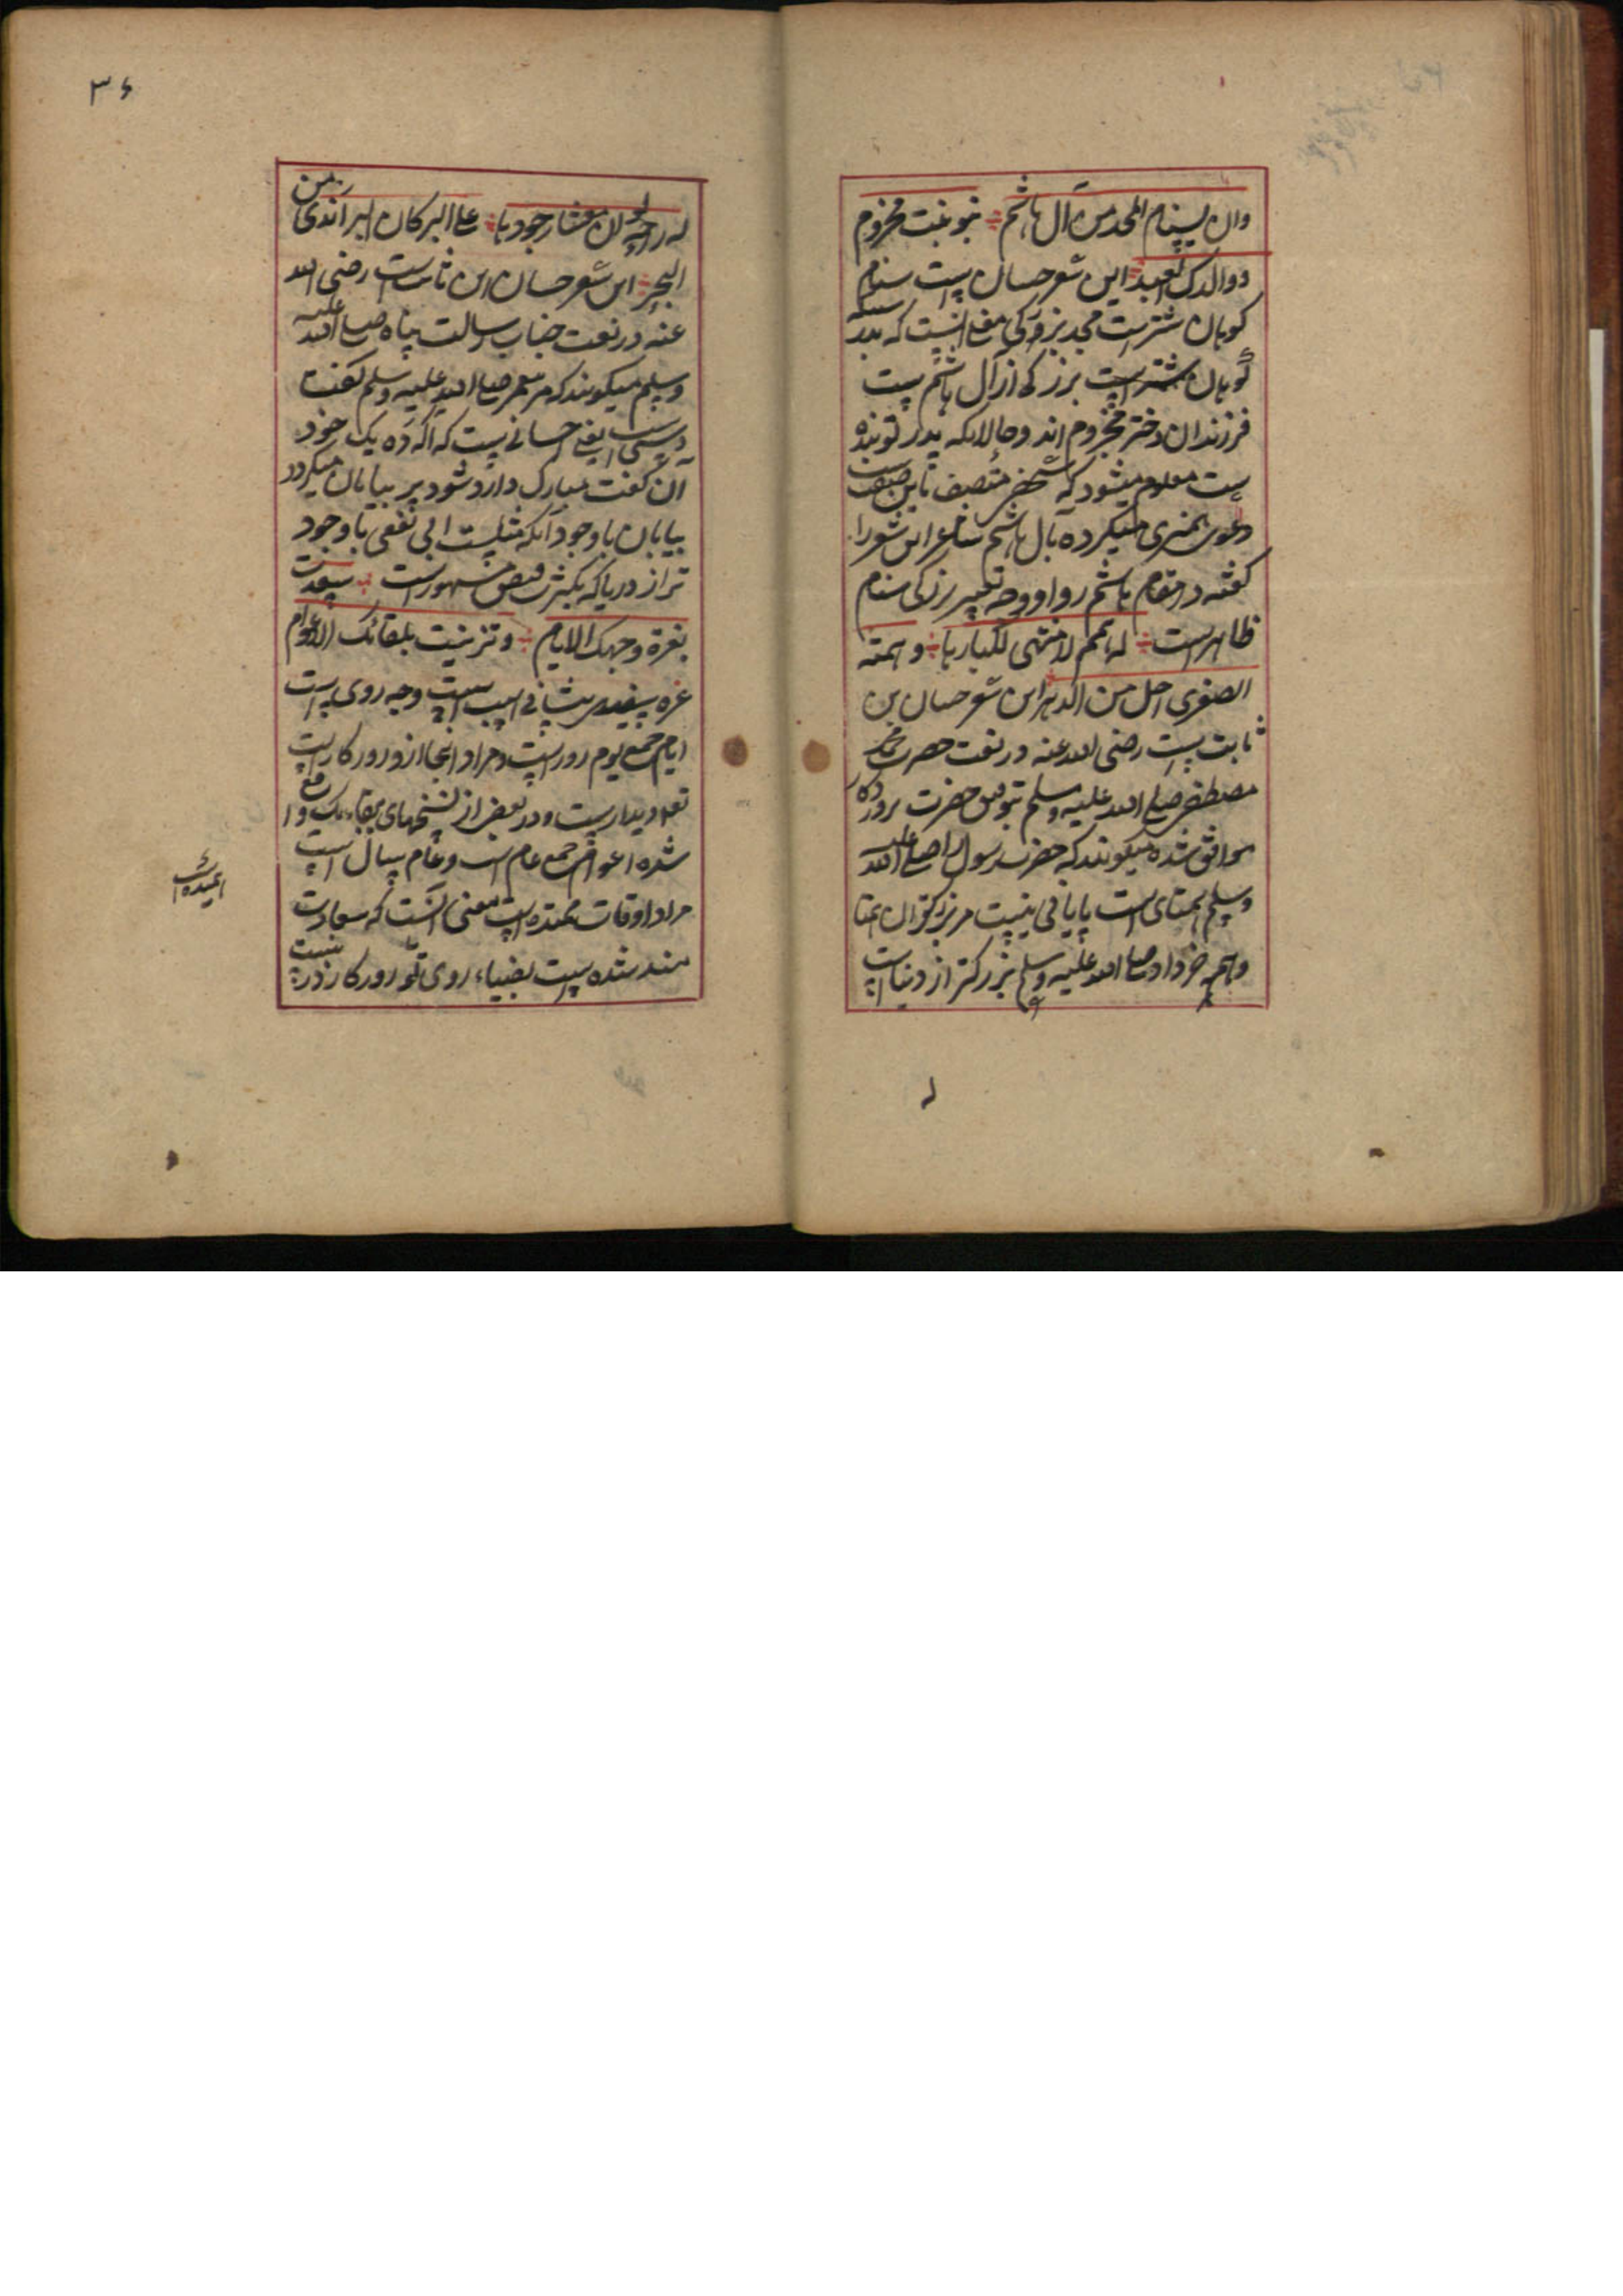 وان سنام المجد من آل هاشم بنو بنت مخزوم
ووالدک العبد این شعر حسان ست سنام
کوهان شترست مجد بزرکی معنی انیست که بدرستیکه
کوهان شتر است بزرکی از آل هاشم ست
فرزندان دختر مخزوم اند وحالانکه پدر تو بنده
ست معلوم میشود که شخصی متصف باین صفت
دعوی همسری میکرده بآل هاشم شاعر این شعر را
کفته در مقام هاشم رو او ووجه تعبیر بزرکی سنام
ظاهرست له همم لا منتهی لکبارها وهمته
الصغری اجل من الدهر این شعر حسان بن
ثابت ست رضی الله عنه در نعت حضرت محمد
مصطفی صلی الله علیه وسلم بتوفیق حضرت پروردکار
موافق شده میکویند که حضرت رسول را صلی الله علیه
وسلم همتهای است پایانی نیست مر بزرکتران همتها
وهمه خرد او صلی الله علیه وسلم بزرکتر از دنیاست
له
۳۶
له راحة لو ان معشار جودها علی البر کان البر اندی من
البحر این شعر حسان ابن ثابت ست رضی الله
عنه در نعت جناب رسالت پناه صلی الله علیه
وسلم میکویند که مر پیغمبر صلی الله علیه وسلم کفت
دستی است یعنی احسانی ست که اکر ده یک جود
آن کفت مبارک وارد شود بر بیابان میکردد
بیابان باوجود آنکه
تر از دریا که بکثرت فیض مشهورست سعدت
بغرة وجهک الایام وتزینت بلقائک الاعوام
غره سفیدی پیشانی اسب است وجه روی است
ایام جمع یوم روز است ومراد اینجا از و روزکار است
لقا دیدار ست ودر بعض از نسخهای ببقائک واقع
شده اعوام جمع عام است وعام سال است
مراد اوقات ممتده است معنی انست که سعادت
مند شده ست بضیاء روی تو روزکار زینت